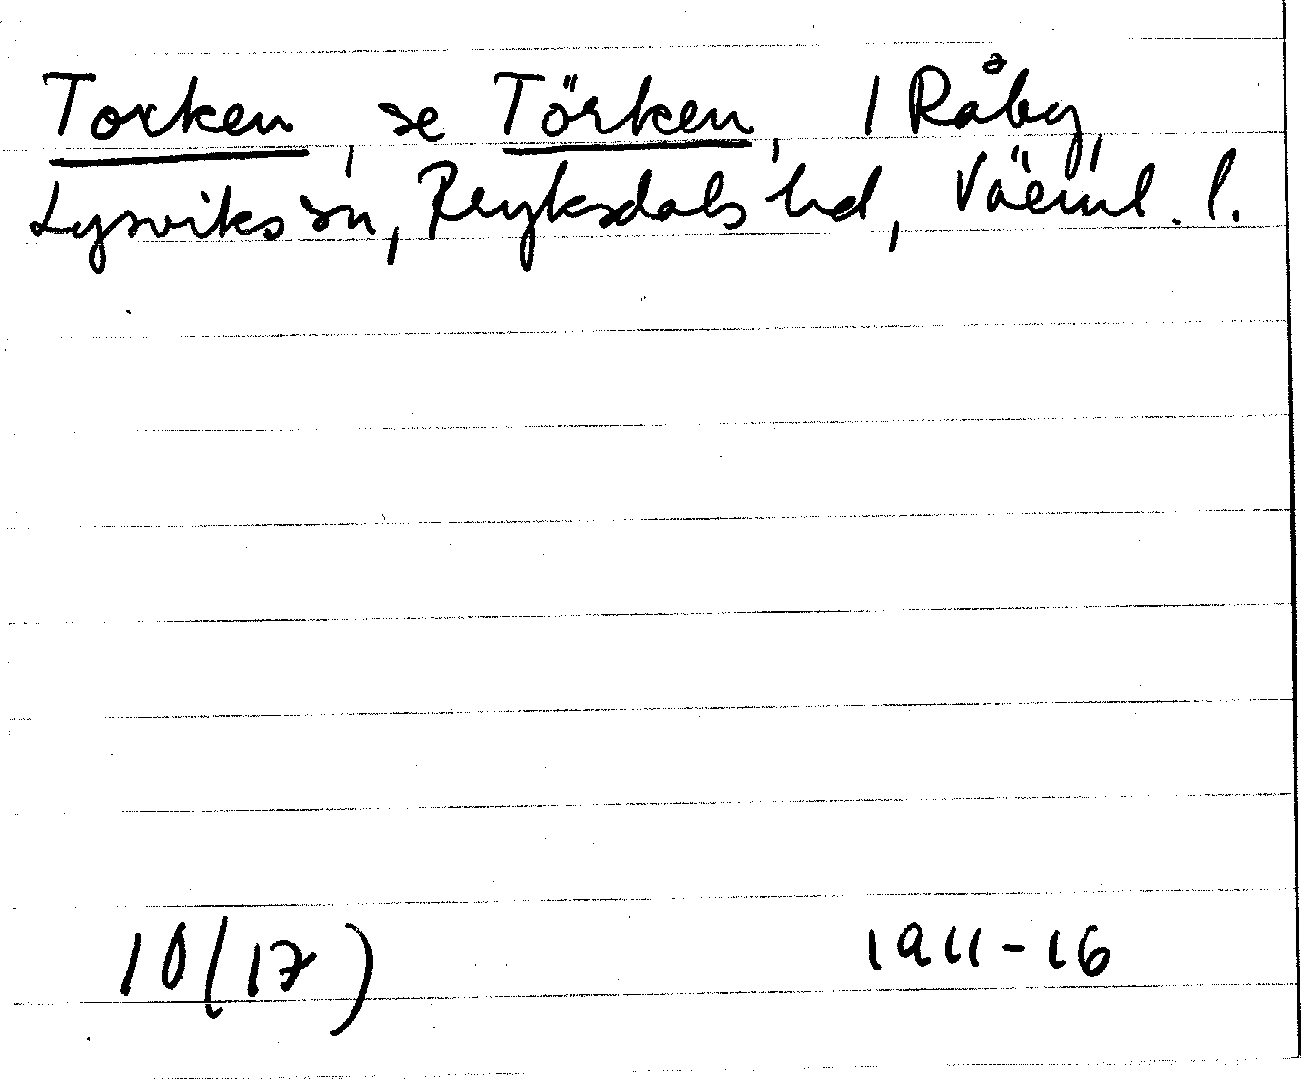 Torken, se Törken, 1 Råby,
Lysviks sn, Fryksdals hd, Värml. l.
10(17) 1911-16